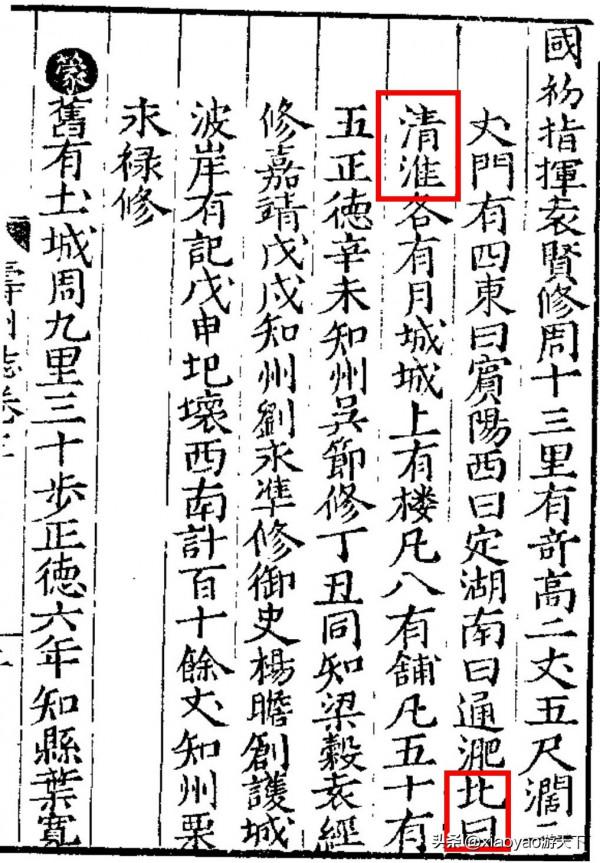 國初指揮袁賢修周十三里有奇高二丈五尺濶二
丈門有四東曰賓陽西曰定湖南曰通淝北曰
清淮各有月城城上有楼凡八有舖凡五十有
五正徳辛未知州吳節修丁丑同知梁穀袁經
修嘉靖戊戌知州劉永凖修御史楊瞻創護城
波岸有記戊申圮壊西南計百十餘丈知州栗
永禄修
蒙舊有土城周九里三十步正徳六年知縣葉寛
壽州志卷
头条@xiaoyao游天下